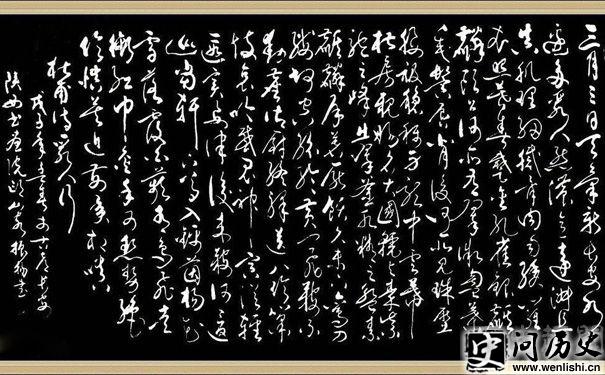 三月三日天气新长安水
边多丽人态浓意远淑且
真肌理细腻骨肉匀绣罗
衣照莫春蹙金孔雀银麒
麟头上何所有翠微㔩叶
垂鬓唇背后何所见珠压
腰衱稳称身就中云幕
椒房亲赐名大国虢与秦紫
驼之峰出翠釜水精之盘行素
鳞犀箸厌饫久未下鸾刀
缕切空纷纶黄门飞鞚不
动尘御厨络绎送八珍箫
鼓哀吟感鬼神宾从杂
遝实要津后来鞍马何逡
巡当轩下马入锦茵杨花
雪落覆白蘋青鸟飞去
衔红巾炙手可热势绝
伦慎莫近前丞相嗔
杜甫诗丽人行
戊子年 长安
陕西书画院
史问历史
www.wenlishi.cn